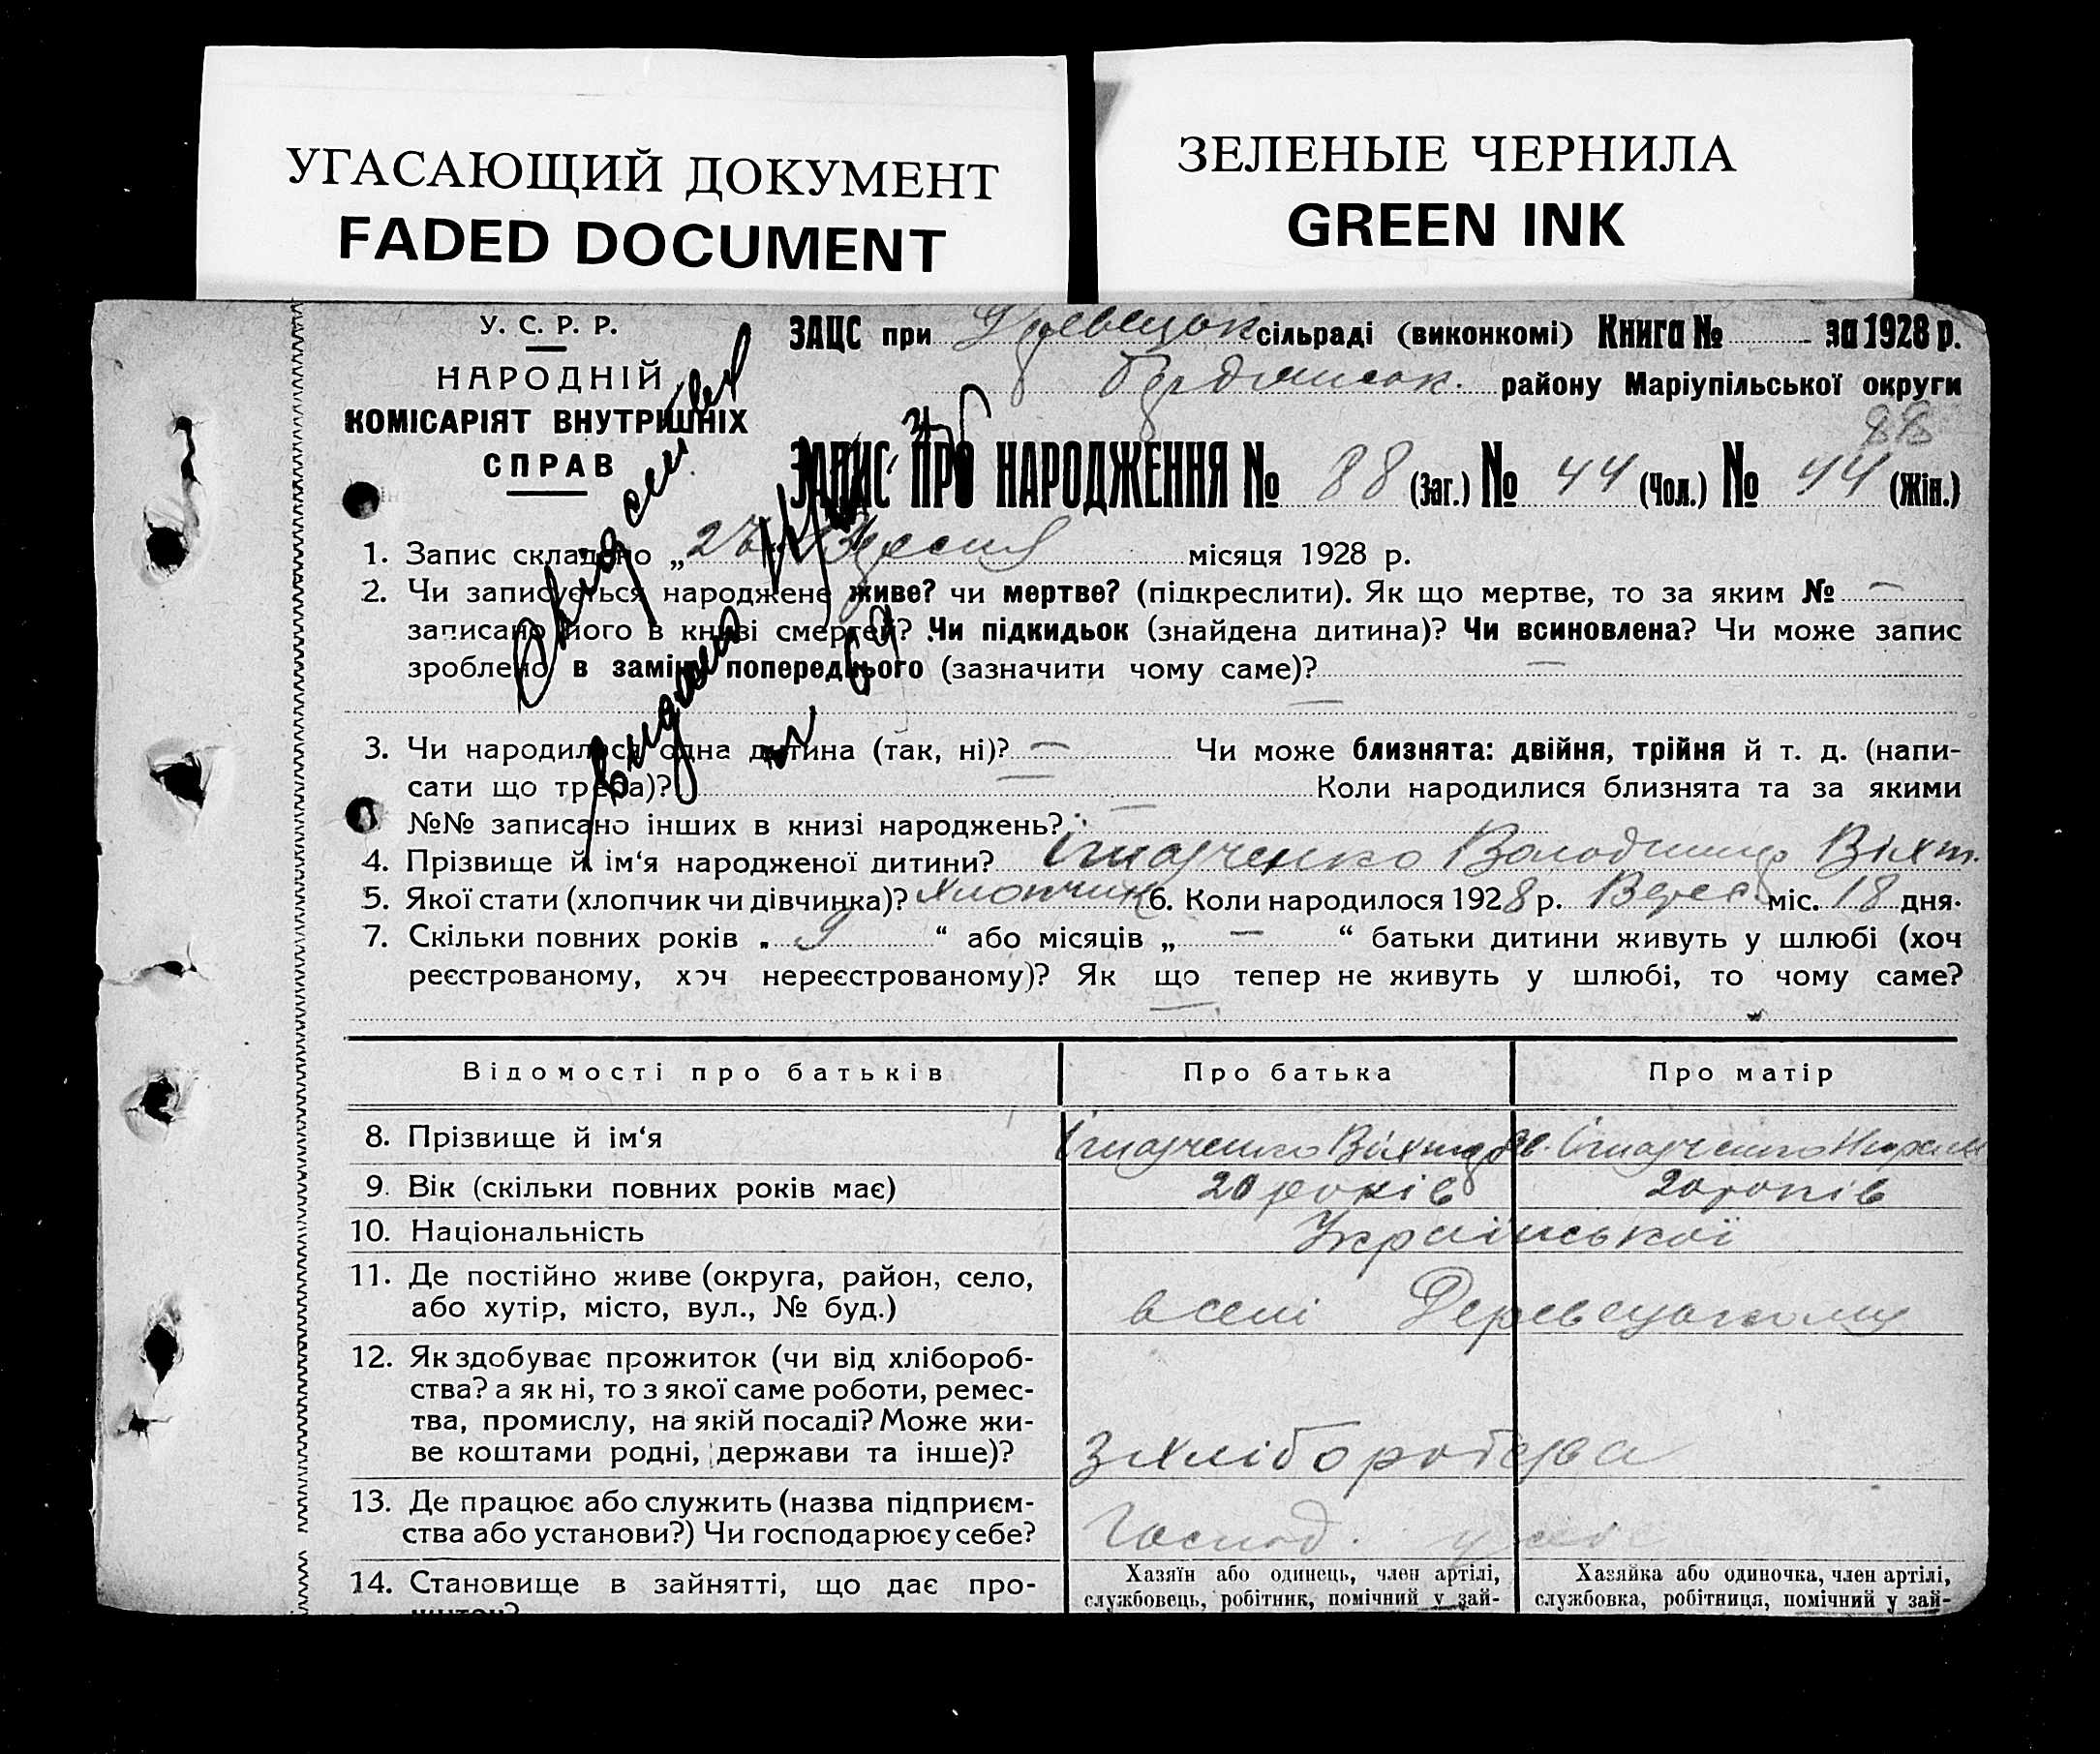 УГАСАЮЩИЙ ДОКУМЕНТ
FADED DOCUMENT
ЗЕЛЕНЫЕ ЧЕРНИЛА
GREEN INK
У. С. Р. Р.
НАРОДНІЙ
КОМІСАРІЯТ ВНУТРІШНІХ
СПРАВ
ЗАЦС при сільраді (виконкомі) Книга № за 1928 р.
Бердянськ. району Маріупільської округи
88
ЗАПИС ПРО НАРОДЖЕННЯ № 88 (Заг.) № 44 (Чол.) № 44 (Жін.)
1. Запис складено „ Вересня місяця 1928 р.
2. Чи записується народжене живе? чи мертве? (підкреслити). Як що мертве, то за яким № —
записано його в книзі смертей? Чи підкидьок (знайдена дитина)? Чи всиновлена? Чи може запис
зроблено в заміну попереднього (зазначити чому саме)? —
—
3. Чи народилася одна дитина (так, ні)? — Чи може близнята: двійня, трійня й т. д. (напи-
сати що треба)? — Коли народилися близнята та за якими
№№ записано інших в книзі народжень? —
4. Прізвище й ім‘я народженої дитини? Володимир Віхт.
5. Якої стати (хлопчик чи дівчинка)? хлопчик 6. Коли народилося 1928 р. Верес. міс. 18 дня.
7. Скільки повних років „ 9 “ або місяців „ — “ батьки дитини живуть у шлюбі (хоч
реєстрованому, хоч нереєстрованому)? Як що тепер не живуть у шлюбі, то чому саме?
—
Відомості про батьків
Про батька
Про матір
8. Прізвище й ім‘я
Віхтор
9. Вік (скільки повних років має)
20 років
20 років
10. Національність
Української
11. Де постійно живе (округа, район, село,
або хутір, місто, вул., № буд.)
в селі
12. Як здобуває прожиток (чи від хлібороб-
ства? а як ні, то з якої саме роботи, ремес-
тва, промислу, на якій посаді? Може жи-
ве коштами родні, держави та інше)?
з хліборобства
13. Де працює або служить (назва підприєм-
ства або установи?) Чи господарює у себе?
Господ. у себе
14. Становище в зайнятті, що дає про-
житок?
Хазяїн або одинець, член артілі,
службовець, робітник, помічний у зай-
Хазяйка або одиночка, член артілі,
службовка, робітниця, помічний у зай-